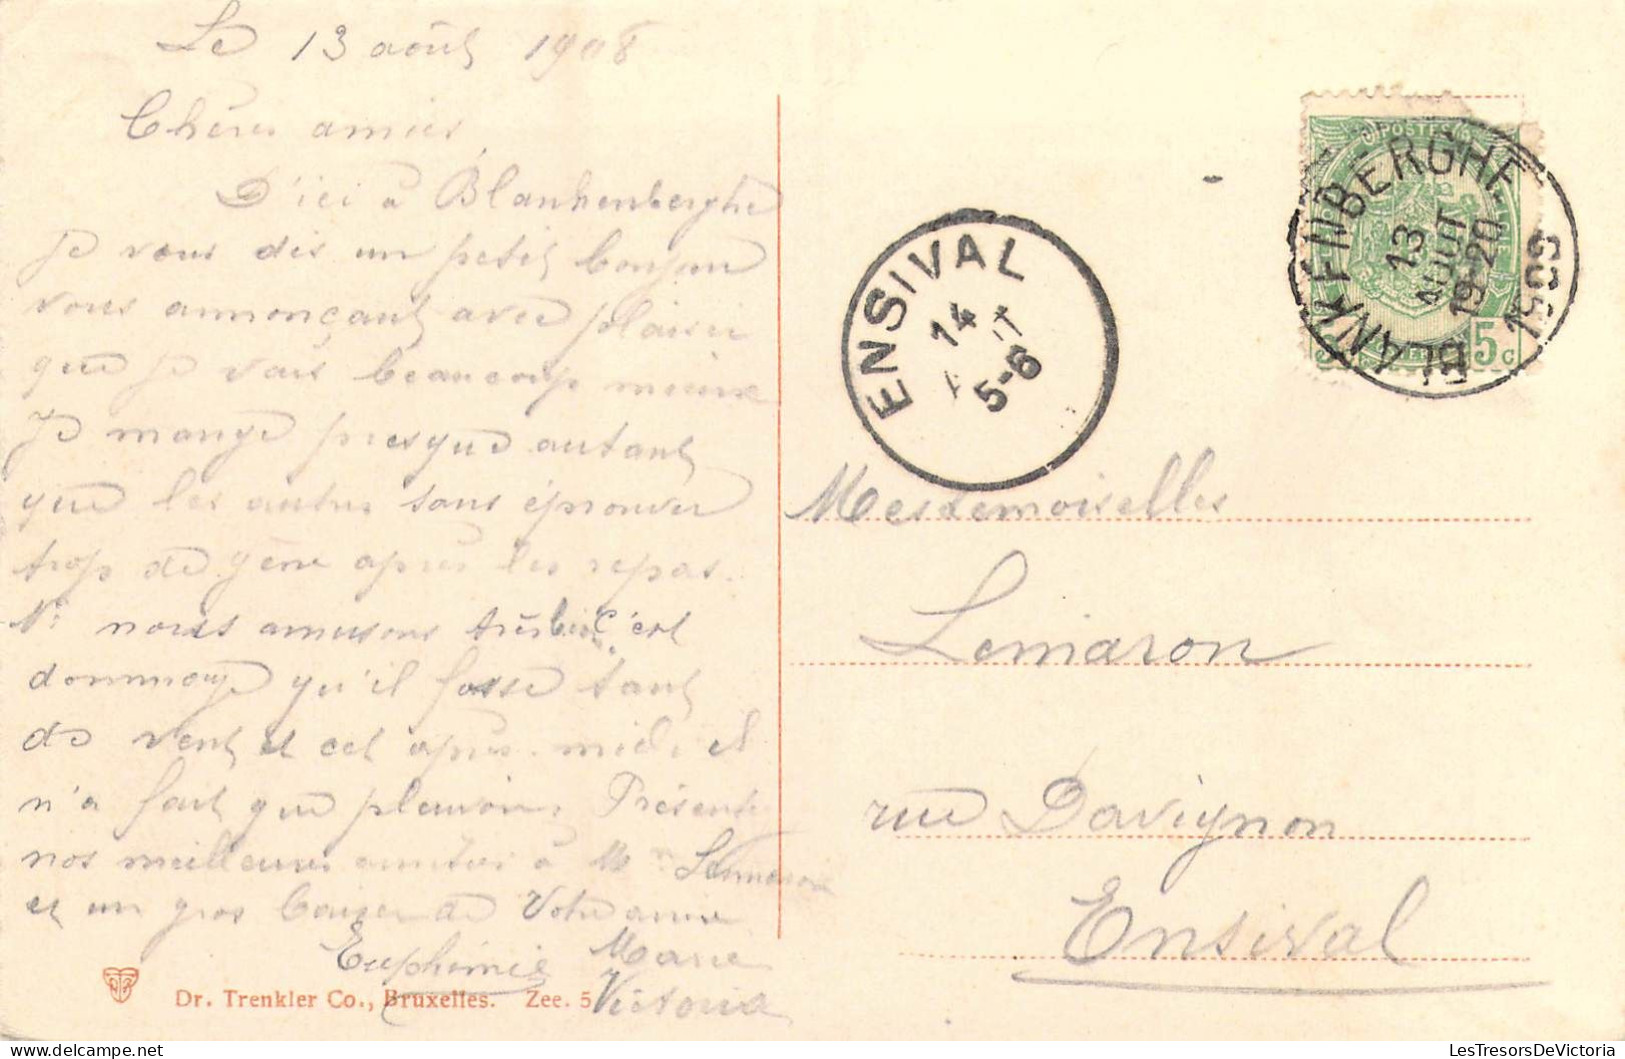 Le 13 août 1908
Chères amies,
D'ici à Blankenberghe
je vous dis un petit bonjour
vous annonçant avec plaisir
que je vais beaucoup mieux
Je mange presque autant
que les autres sans éprouver
trop de gêne après les repas.
Ns nous amusons très bien. C'est
dommage qu'il fasse tant
de vent et cet après-midi il
n'a fait que pleuvoir. Présentez
nos meilleures amitiés à Mme Lemaron
et un gros baiser de Votre amie
Euphémie Marie
Victoria
Dr. Trenkler Co., Bruxelles. Zee. 5
ENSIVAL
14
5-6
POSTES
5 C
BLANKENBERGHE
13
AOUT
19-20
1908
Mesdemoiselles
Lemaron
rue Davignon
Ensival
LesTresorsDeVictoria.com